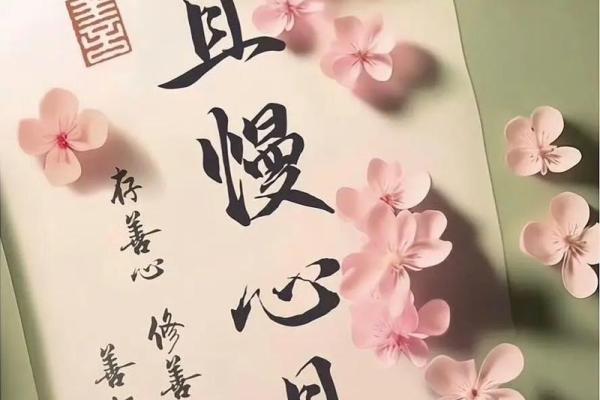 且慢心
存善心 修善
善